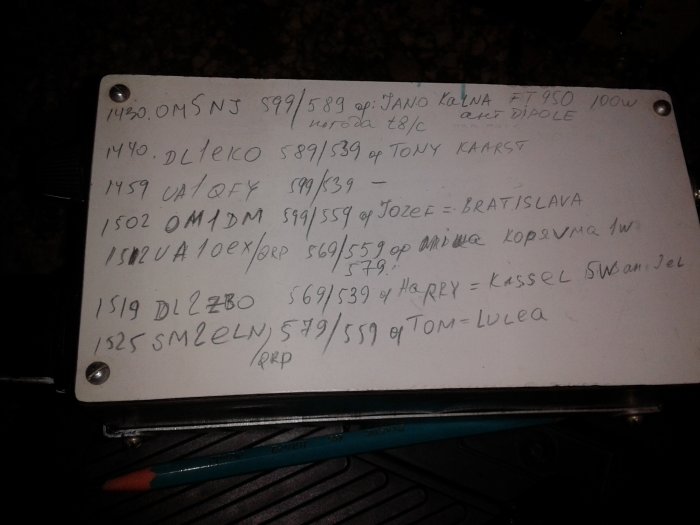 1430. OM5NJ 599/589 op: JANO KALNA FT950 100W
погода t8/c ант DIPOLE
1440. DL1eKO 589/539 op TONY KAARST
1459 UA1QFY 599/539 —
1502 OM1DM 599/559 of Jozef = BRATISLAVA
1512 UA1Oex/QRP 569/559 op 1W
579.
1519 DL2ZBO 569/539 of HaRRY = KASSEL 5W
1525 SM2eLN/ 579/559 of TOM = LULEA
QRP